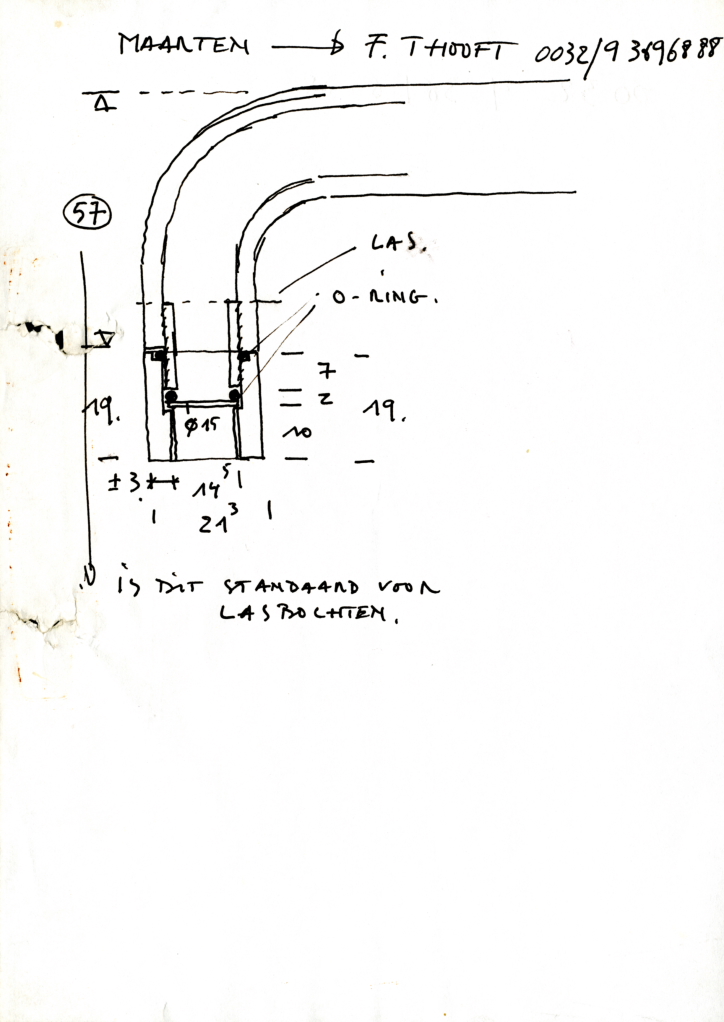 MAARTEN → F. THOOFT 0032/9 3896888
57
LAS.
O-RING.
7
19.
2
19.
Ø15
10
±3
14⁵
21³
is DIT STANDAARD VOOR
LASBOCHTEN.